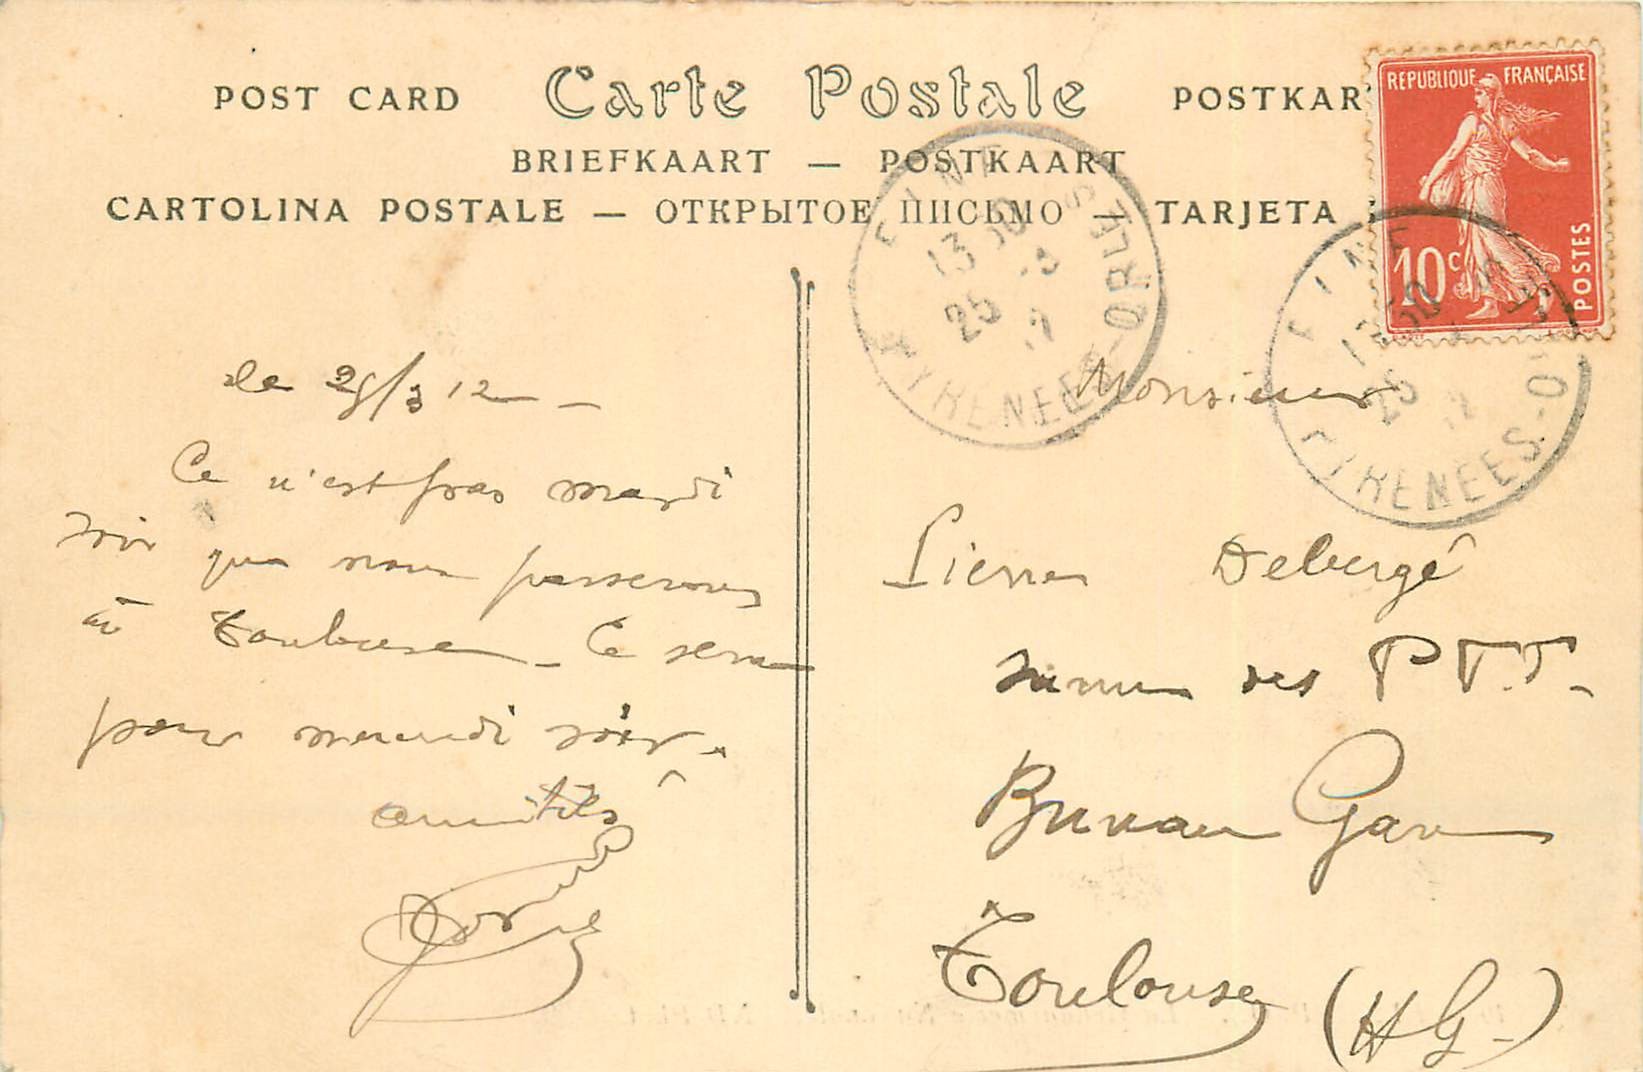 POST CARD Carte Postale POSTKAR
BRIEFKAART — POSTKAART
CARTOLINA POSTALE — ОТКРЫТОЕ ПИСЬМО — TARJETA
REPUBLIQUE FRANÇAISE
10c
POSTES
ELNE
13 30
25 -3
12
PYRENEES-ORLES
ELNE
13 30
25
12
PYRENEES-O
le 25/3 12 —
Ce n'est pas mardi
soir que nous passerons
à Toulouse — Ce sera
pour mercredi soir.
amitiés
Monsieur
Pierre Debergé
des P.T.T.
Bureau Gare
Toulouse (H G.)